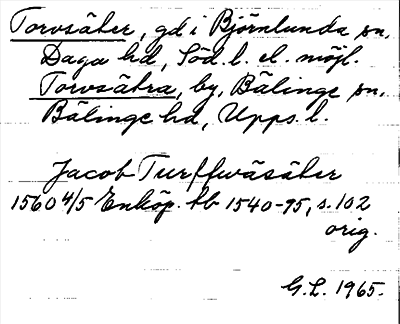 Torvsäter, gd i Björnlunda sn,
Daga hd, Söd. l. el. möjl.
Torvsätra, by, Bälinge sn,
Bälinge hd, Upps. l.
Jacob Turffwäsäter
1560 4/5 Enköp. tb 1540-95, s. 102
orig.
G.L. 1965.